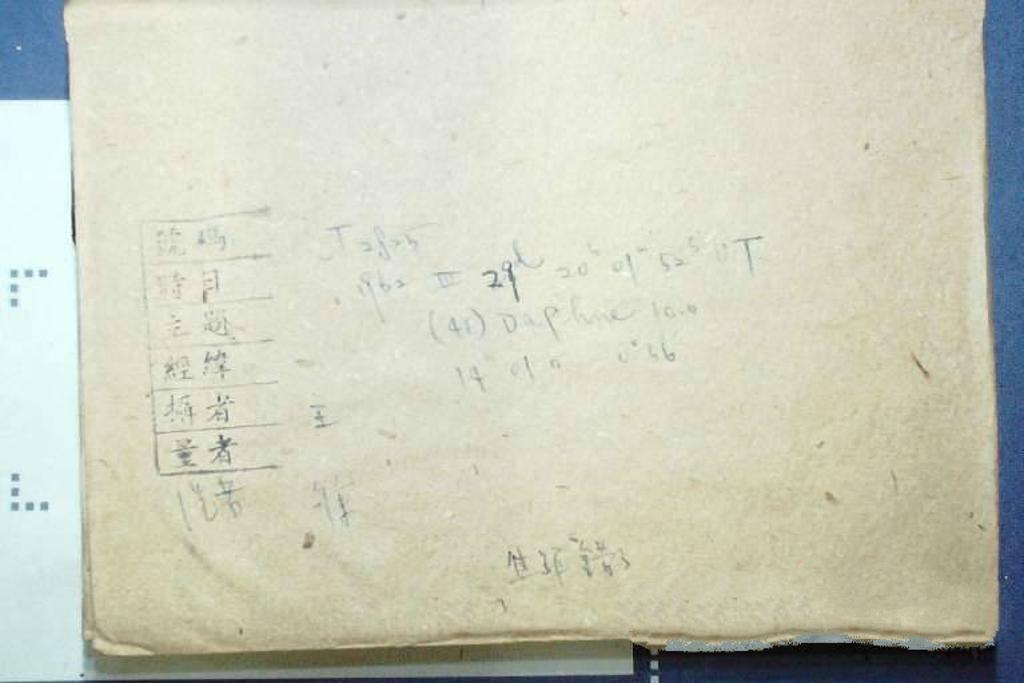 號碼 J 2825
時日 1962 III 29d 20h 01m 52s UT
主題 (41) Daphne 10.0
經緯 14 01.0 0°36
攝者 王
量者